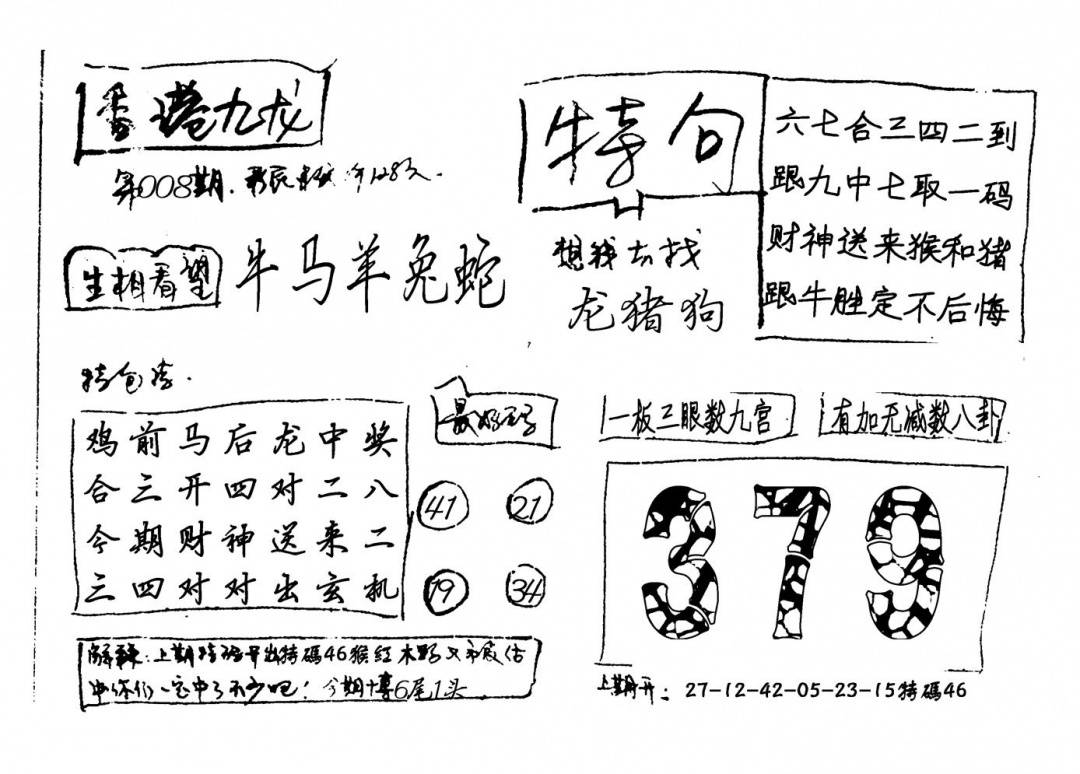 香港九龙
第008期.
特句
六七合三四二到
跟九中七取一码
财神送来猴和猪
跟牛胜定不后悔
生相看望
牛马羊兔蛇
想我去找
龙猪狗
鸡前马后龙中奖
合三开四对二八
今期财神送来二
三四对对出玄机
41
21
19
34
一板三眼数九宫
有加无减数八卦
379
上期特码开出特碼46猴红木野又
中你们一定中了不少吧！今期博6尾1头
上期开：27-12-42-05-23-15特碼46